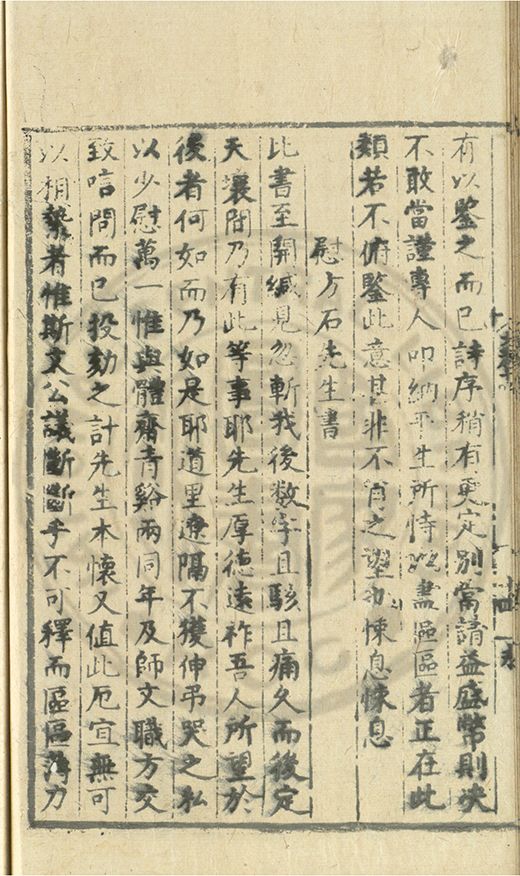 有以鑒之而已詩序稍有更定別當請益盛幣則決
不敢當謹專人叩納平生所恃以盡區區者正在此
類若不俯鑒此意其非不肖之望也悚息悚息
慰方石先生書
此書至開緘見忽斬我後數字且駭且痛久而後定
天壤間乃有此等事耶先生厚德遠祚吾人所望於
後者何如而乃如是耶道里遼隔不獲伸弔哭之私
以少慰萬一惟與體齋青谿兩同年及師文職方交
致唁問而已投劾之計先生本懷又值此厄宜無可
以相縶者惟斯文公議斷斷乎不可釋而區區薄力